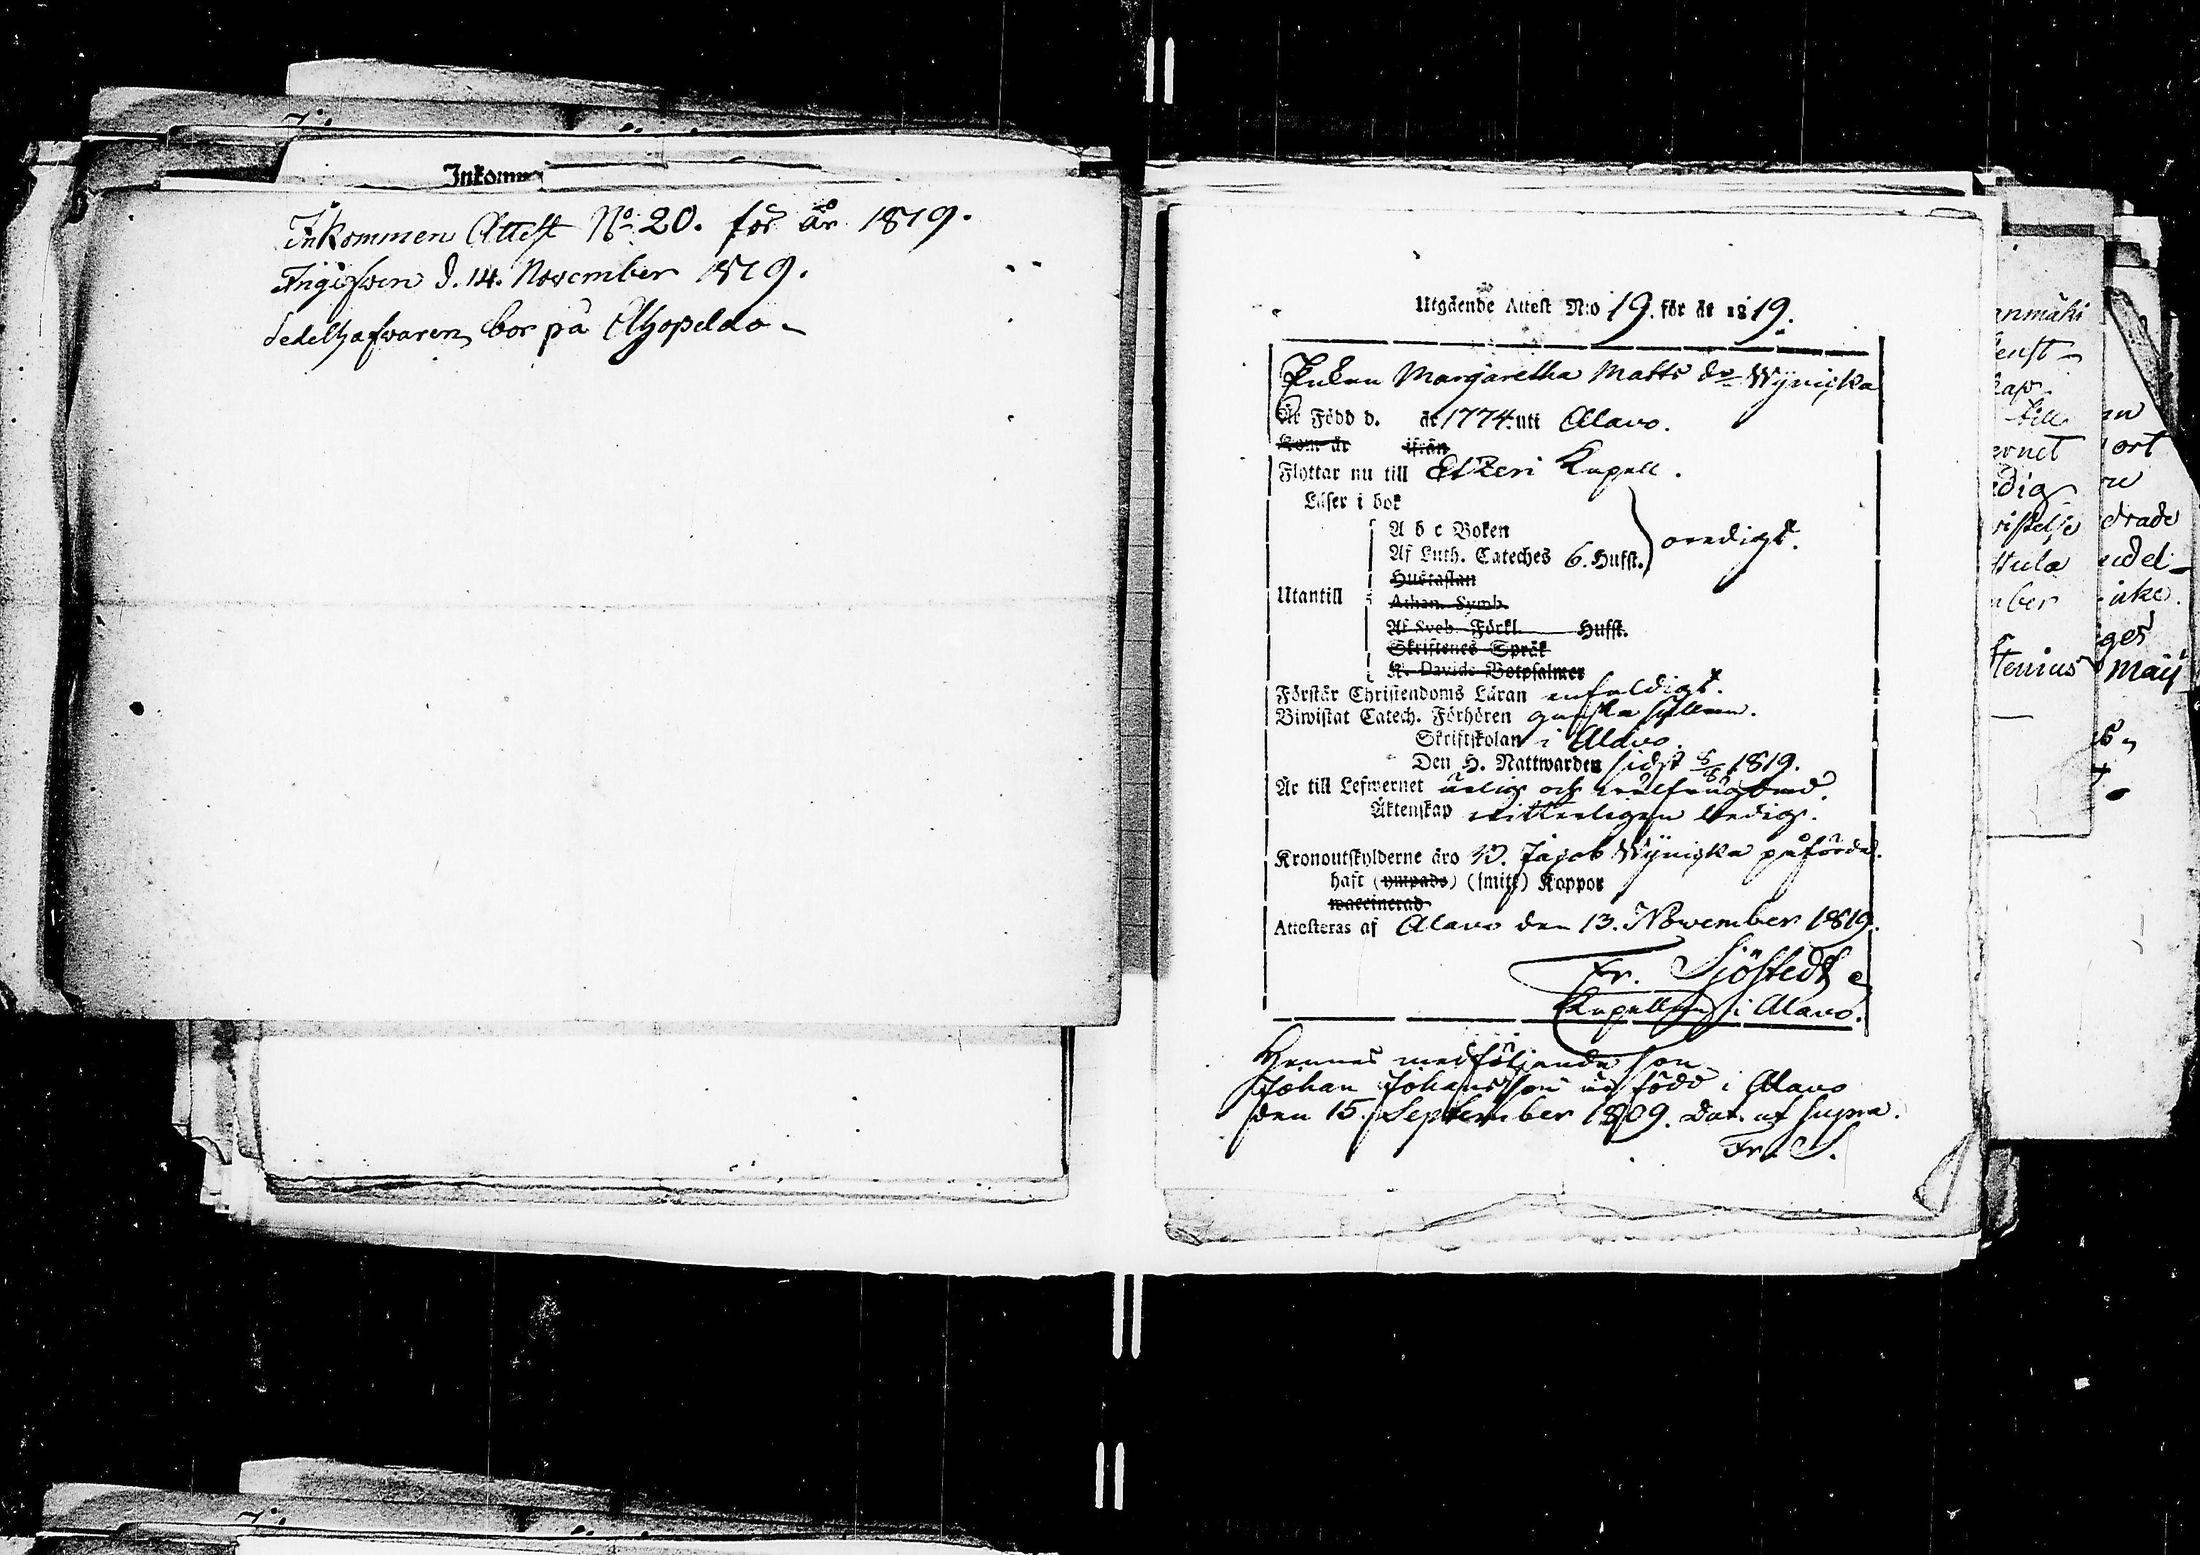 Inkomm
Inkommen Attest No 20. för år 1819.
Ingifwen d. 14. November 1819.
Sedelhafwaren bor på
Utgående Attest N:o 19. för år 1819.
Enkan Margaretha Matts dr
Är Född d. år 1774. uti Alavo.
Kom år ifrån
Flyttar nu till Etzeri Kapell.
Läser i bok
A b c Boken
Af Luth. Cateches 6. Hufst. oredigt.
Hustaflan
Utantill
Athan. Symb.
Af Sveb. Förkl. Hufst.
Skriftenes Språk
K. Davids Botpsalmer
Förstår Christendoms Läran enfaldigt.
Biwistat Catech. Förhören ganska sällan.
Skriftskolan i Alavo.
Den H. Nattwarden sidst 1819.
Är till Lefwernet ärlig och wälfrägdad.
Äktenskap witterligen ledig.
Kronoutskylderne äro Jacob påförde.
haft (ympade) (smitt) Koppor
waccinerad
Attesteras af Alavo den 13. November 1819.
Fr. Sjöstedt
Kapellan i Alavo.
Hennes medföljande son
Johan Johansson är född i Alavo
den 15. September 1809. Dat. ut supra.
Fr. S.
anmäki
kap
till
ernet
edig
ristelse
ttula
ber
tenius
ort
drade
udel
inke.
ges
Maij